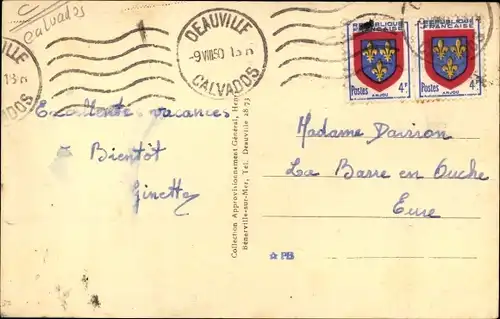 Calvados
DEAUVILLE
-9 VIII 50
CALVADOS
REPUBLIQUE
FRANÇAISE
Postes 4F
ANJOU
REPUBLIQUE
FRANÇAISE
Postes 4F
ANJOU
Excellentes vacances
à Bientôt
Ginette
Collection Approvisionnement Général,
Bénerville-sur-Mer, Tel. Deauville 28-73
Madame
La Barre en Ouche
Eure